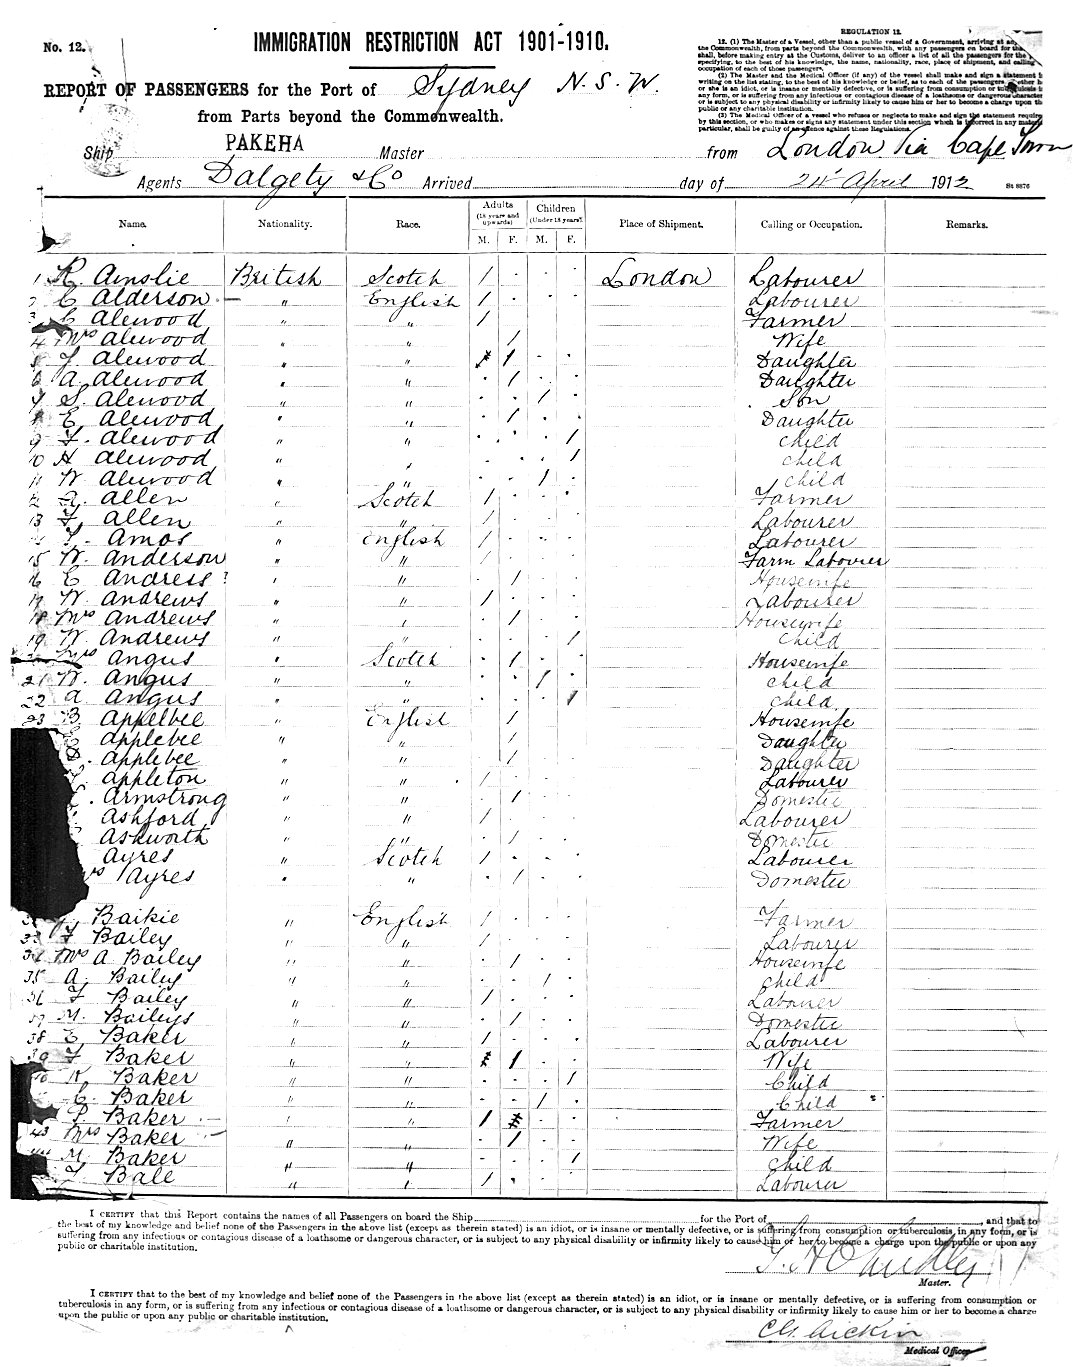 No. 12.
IMMIGRATION RESTRICTION ACT 1901-1910.
REPORT OF PASSENGERS for the Port of Sydney N.S.W.
from Parts beyond the Commonwealth.
REGULATION 12.
12. (1) The Master of a Vessel, other than a public vessel of a Government, arriving at
the Commonwealth, from parts beyond the Commonwealth, with any passengers on board for the
shall, before making entry at the Customs, deliver to an officer a list of all the passengers for the
specifying, to the best of his knowledge, the name, nationality, race, place of shipment, and calling
occupation of each of those passengers.
(2) The Master and the Medical Officer (if any) of the vessel shall make and sign a statement
writing on the list stating, to the best of his knowledge or belief, as to each of the passengers, whether
or she is an idiot, or is insane or mentally defective, or is suffering from consumption or tuberculosis
any form, or is suffering from any infectious or contagious disease of a loathsome or dangerous character
or is subject to any physical disability or infirmity likely to cause him or her to become a charge upon
public or any charitable institution.
(3) The Medical Officer of a vessel who refuses or neglects to make and sign the statement
by this section, or who makes or signs any statement under this section which is incorrect in any
particular, shall be guilty of an offence against these Regulations.
Ship PAKEHA Master from London Via Cape Town
Agents Dalgety & Co Arrived day of 24 April 1912 St 8876
Name. Nationality. Race. Adults (15 years and upwards) Children (Under 15 years). Place of Shipment. Calling or Occupation. Remarks.
M. F. M. F.
1 R. Ainslie British Scotch / London Labourer
2 C Alderson " English / Labourer
C Alewood " " / Farmer
4 Mrs Alewood " " / Wife
5 J Alewood " " / Daughter
6 A. Alewood " " / Daughter
7 S. Alewood " " / Son
8 E. Alewood " " / Daughter
9 F. Alewood " " / Child
10 H Alewood " " / Child
11 W Alewood " " / Child
12 A. Allen " Scotch / Farmer
13 F. Allen " " / Labourer
Amos " English / Labourer
15 W. Anderson " " / Farm Labourer
16 E Andress ? " " / Housewife
17 W. Andrews " " / Labourer
18 Mrs Andrews " " / Housewife
19 W. Andrews " " / Child
Mrs Angus " Scotch / Housewife
21 W. Angus " " / Child
22 A Angus " " / Child
23 B. Appelbee " English / Housewife
Applebee " " / Daughter
Applebee " " / Daughter
Appleton " " / Labourer
Armstrong " " / Domestic
Ashford " " / Labourer
Ashworth " " / Domestic
Ayres " Scotch / Labourer
Ayres " " / Domestic
Baikie " English / Farmer
33 F Bailey " " / Labourer
34 Mrs A Bailey " " / Housewife
35 A. Bailey " " / Child
36 F Bailey " " / Labourer
37 M. Baileys " " / Domestic
38 E. Baker " " / Labourer
39 F Baker " " / Wife
K Baker " " / Child
C. Baker " " / Child
P Baker " " / Farmer
43 Mrs Baker " " / Wife
M. Baker " " / Child
F. Bale " " / Labourer
I CERTIFY that this Report contains the names of all Passengers on board the Ship for the Port of , and that to
the best of my knowledge and belief none of the Passengers in the above list (except as therein stated) is an idiot, or is insane or mentally defective, or is suffering from consumption or tuberculosis, in any form, or is
suffering from any infectious or contagious disease of a loathsome or dangerous character, or is subject to any physical disability or infirmity likely to cause him or her to become a charge upon the public or upon any
public or charitable institution.
Master.
I CERTIFY that to the best of my knowledge and belief none of the Passengers in the above list (except as therein stated) is an idiot, or is insane or mentally defective, or is suffering from consumption or
tuberculosis in any form, or is suffering from any infectious or contagious disease of a loathsome or dangerous character, or is subject to any physical disability or infirmity likely to cause him or her to become a charge
upon the public or upon any public or charitable institution.
Medical Officer